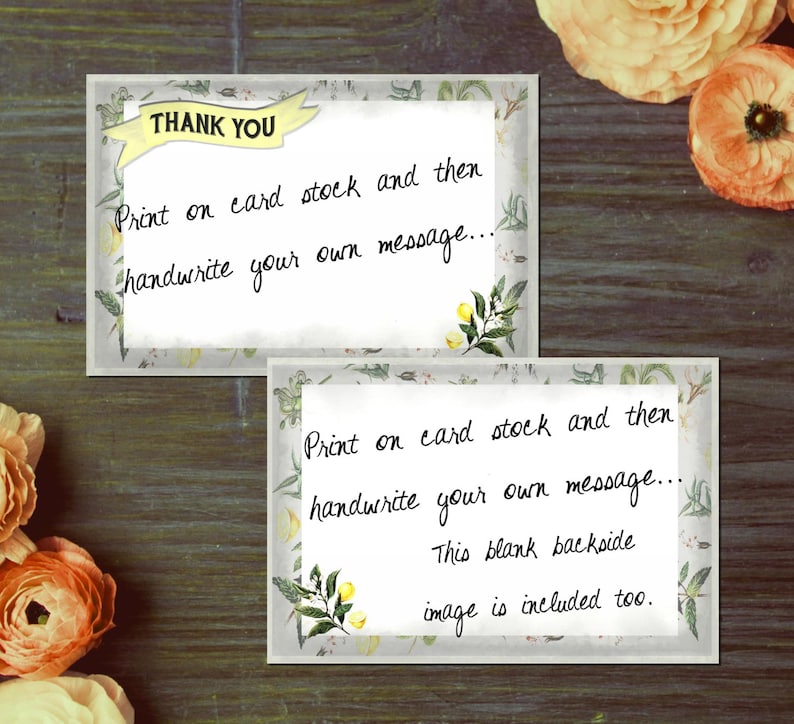 THANK YOU
Print on card stock and then
handwrite your own message...
Print on card stock and then
handwrite your own message...
This blank backside
image is included too.